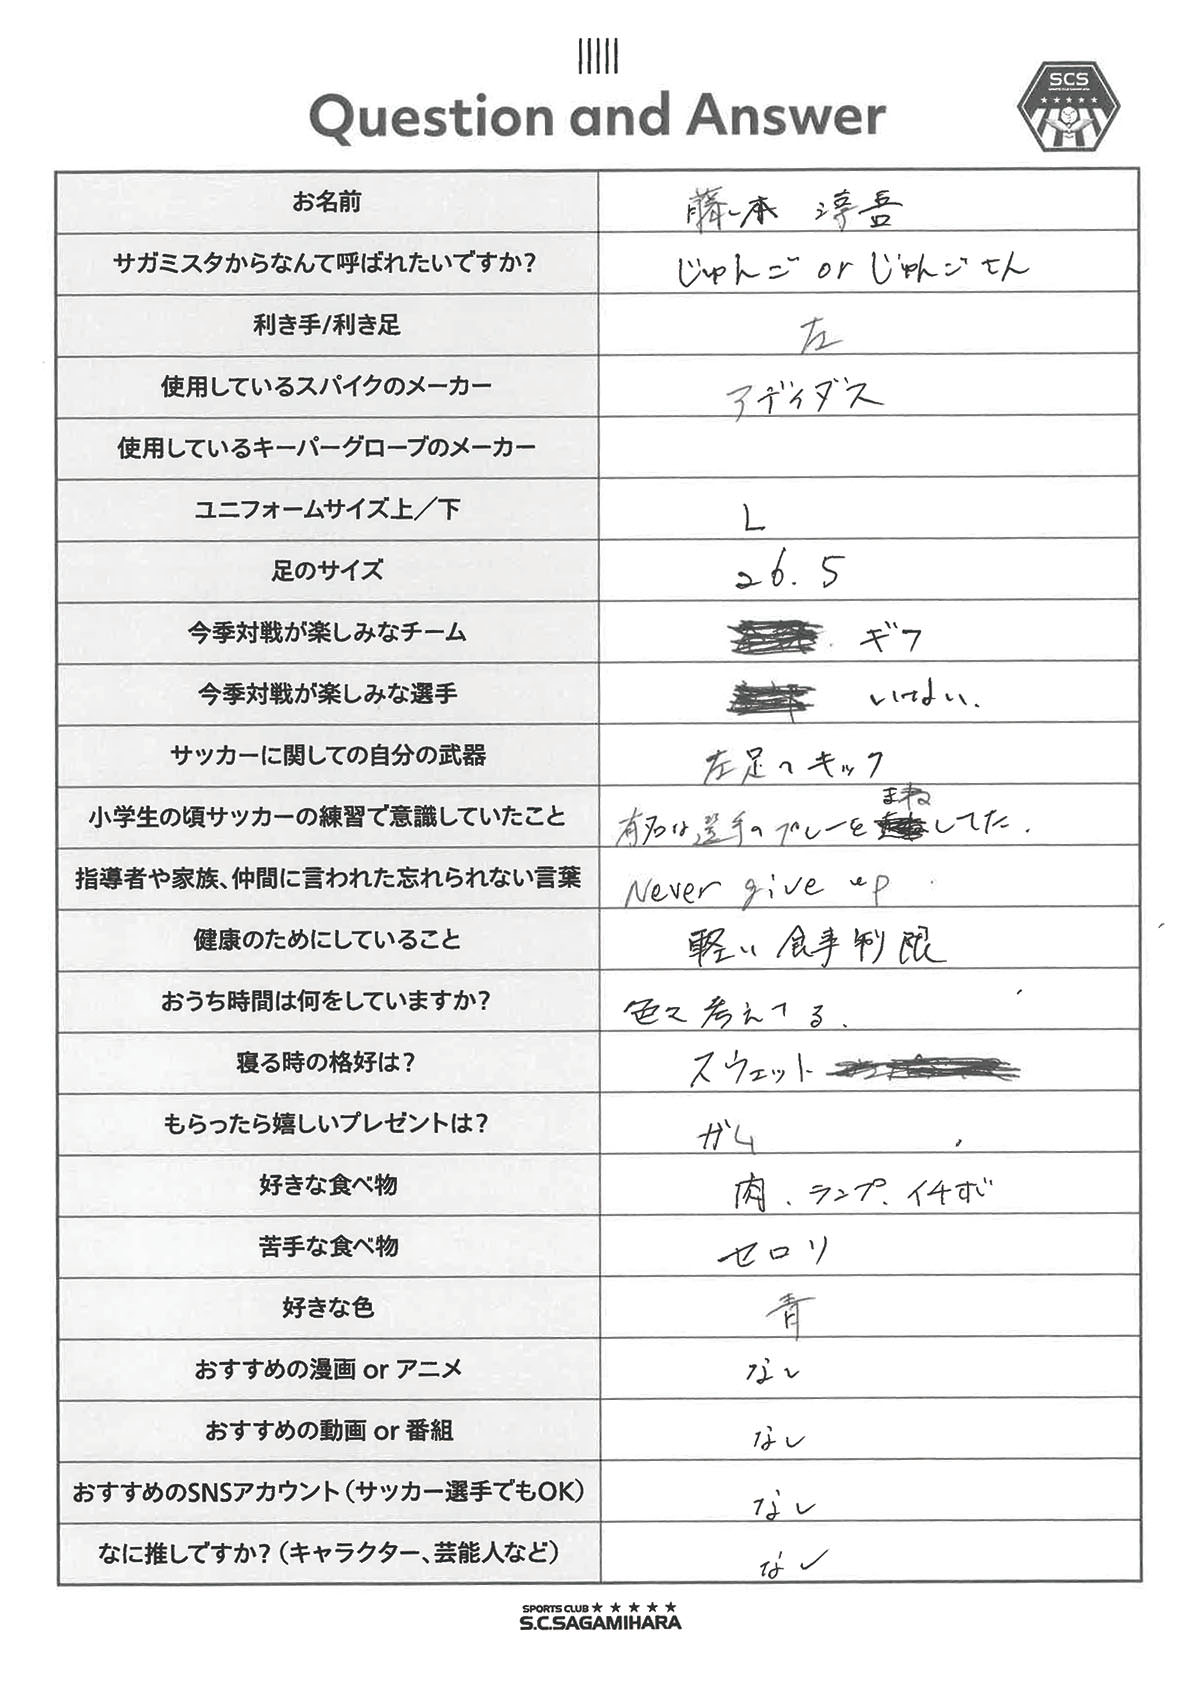 Question and Answer
SCS
お名前
藤本 淳吾
サガミスタからなんて呼ばれたいですか?
じゅんご or じゅんごさん
利き手/利き足
左
使用しているスパイクのメーカー
アディダス
使用しているキーパーグローブのメーカー
ユニフォームサイズ上／下
L
足のサイズ
26.5
今季対戦が楽しみなチーム
ギフ
今季対戦が楽しみな選手
いけない.
サッカーに関しての自分の武器
左足のキック
小学生の頃サッカーの練習で意識していたこと
有名な選手のプレーをまねしてた.
指導者や家族、仲間に言われた忘れられない言葉
Never give up
健康のためにしていること
軽い食事制限
おうち時間は何をしていますか?
色々考えてる.
寝る時の格好は?
スウェット
もらったら嬉しいプレゼントは?
ガム
好きな食べ物
肉、ランプ、イチボ
苦手な食べ物
セロリ
好きな色
青
おすすめの漫画 or アニメ
なし
おすすめの動画 or 番組
なし
おすすめのSNSアカウント（サッカー選手でもOK）
なし
なに推しですか?（キャラクター、芸能人など）
なし
SPORTS CLUB ★ ★ ★ ★ ★
S.C.SAGAMIHARA